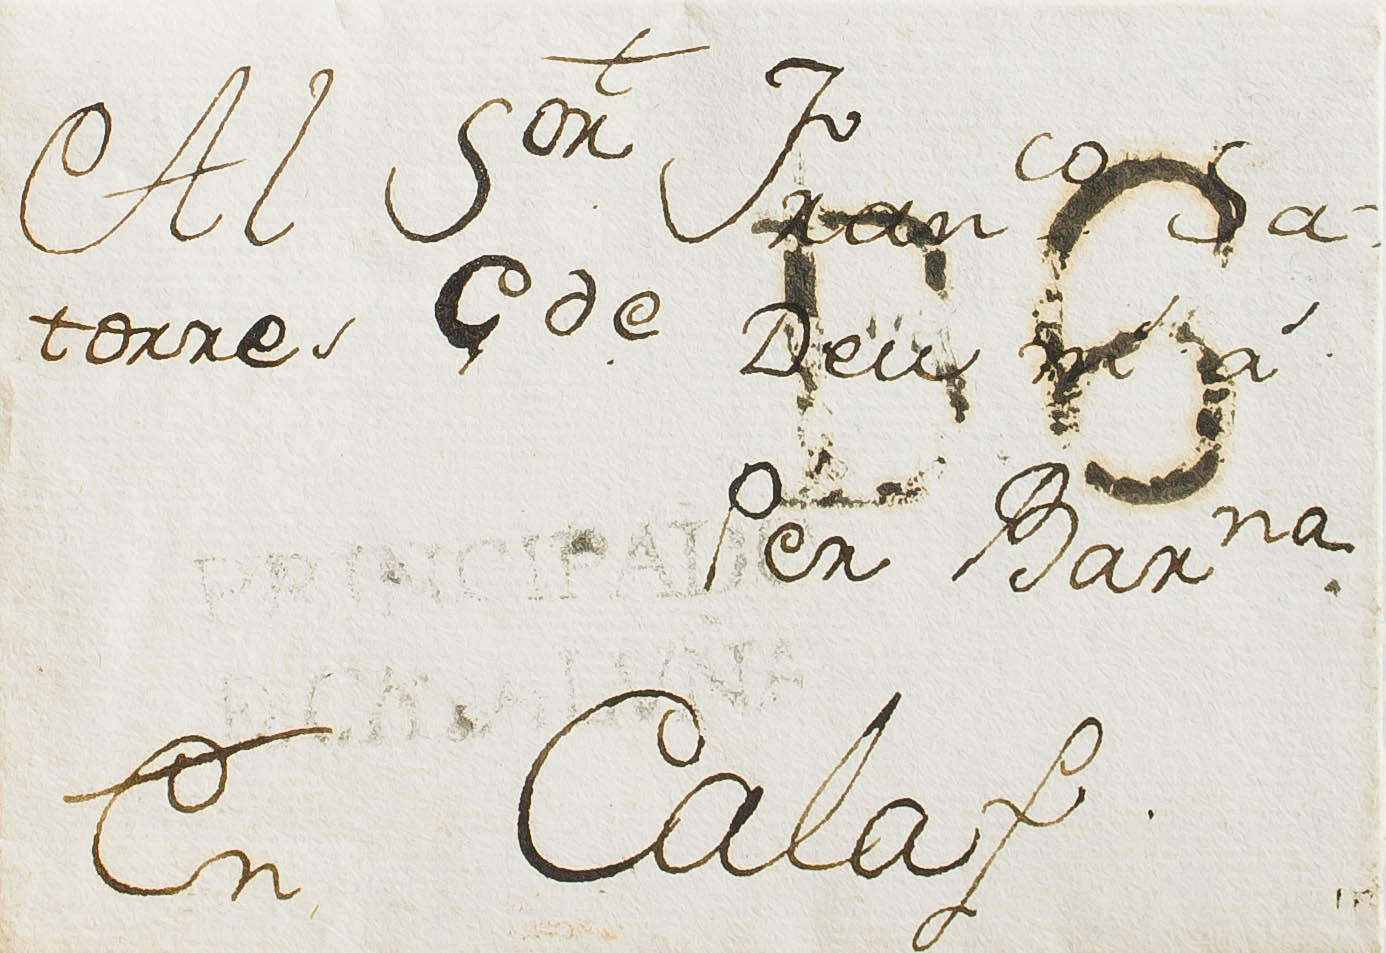 Al Sor.t Jo Fran.co Sa-
torres Ç de Deu m.' a.'
Per Bar.na
PRINCIPADO
D CATALUNA
En Calaf.